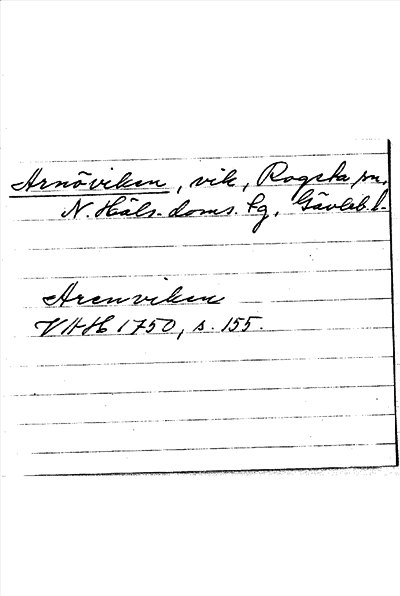 Arnöviken, vik, Rogsta sn,
N. Häls. doms. fg, Gävleb. l.
Arenviken
VHH 1750, s. 155.